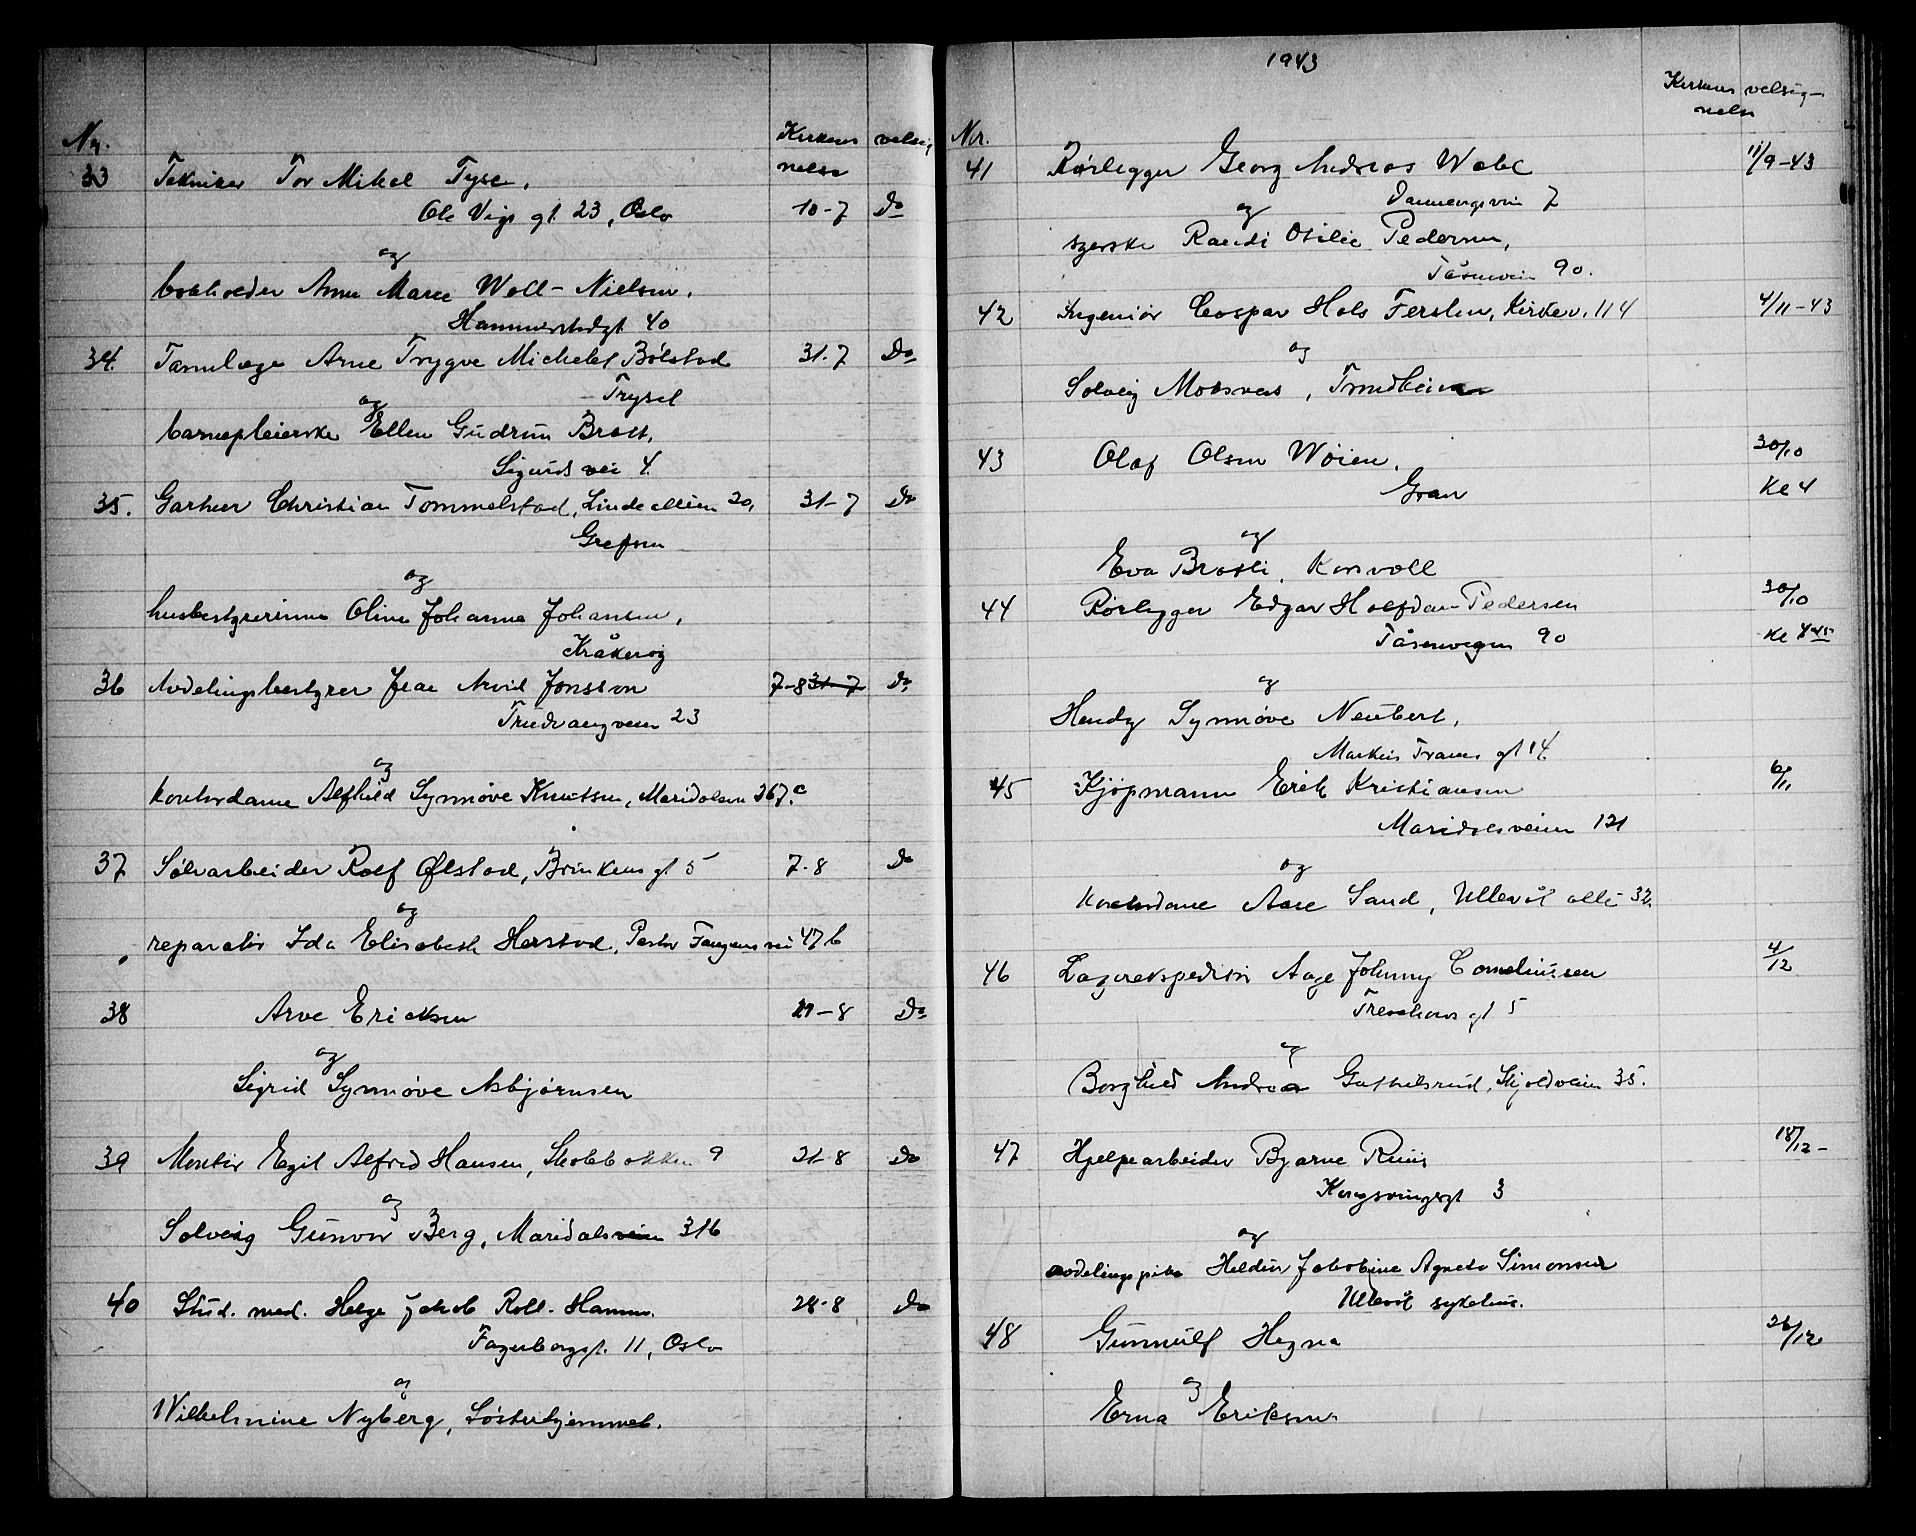 Nr. Kirkens velsig-
nelse
33 Tekniker Tor Mikal Tyse.
Ole Vigs gt. 23, Oslo 10-7 Do
og
bokholder Anne Marie Woll-Nielsen.
Hammerstadgt 40
34. Tannlæge Arne Trygve Michelet Bölstad 31-7 Do
Trysil
og
barnepleierske Ellen Gudrun Bratt,
Sigurds vei 4.
35. Gartner Christian Tommelstad, Lindealleen 20, 31-7 Do
Grefsen
og
husbestyrerinne Oline Johanne Johansen,
Kråkeröy
36 Avdelingsbestyrer Arvid Jonsson 7-8 31-7 Do
Trudvangveien 23
og
kontordame Alfhild Synnöve Knutsen, Maridalsvn 367.c
37 Sölvarbeider Rolf Ølstad, Brinkens gt 5 7-8 Do
og
reparatör Ida Elisabeth Herstad, Pastor Fangens vei 47 b
38 Arve Ericksen 21-8 Do
og
Sigrid Synnöve Asbjörnsen
39 Montör Egil Alfred Hansen, 9 21-8 Do
og
Solveig Gunvor Berg, Maridalsveien 316
40 Stud. med. Helge Jakob Roll-Hansen. 28-8 Do
Fagerborggt. 11, Oslo
og
Wilhelmine Nyberg, Sösterhjemmet.
1943
Nr. Kirkens velsig-
nelse
41 Rörlegger Georg Andreas Wabl 11/9-43
7
og
syerske Randi Otilie Pedersen,
Tåsenveien 90.
42 Ingeniör Caspar Hals Fersten, Kirkev. 114 4/11-43
og
Solveig Mosnes, Trondheim
43 Olaf Olsen Wöien, 30/10
Gran Kl 4
og
Eva Bratli, Korsvoll
44 Rörlegger Edgar Halfdan Pedersen 30/10
Tåsenvegen 90 Kl 4 45
og
Hendy Synnöve Neubert,
Markus Tranes gt 14
45 Kjöpmann Erik Kristiansen 6/11
Maridalsveien 121
og
kontordame Aase Sand, Ullevål allé 32.
46 Lagerekspeditör Aage Johnny Corneliussen 4/12
Treschows gt 5
og
Borghild Andrea Guthilsrud, Skjoldveien 35.
47 Hjelpearbeider Bjarne Ruus 18/12-
Kongsvingergt 3
og
avdelingspike Heldur Jakobine Agnete Simonsen
Ullevål sykehus.
48 Gunnulf Hegna 26/12
og
Erna Eriksen